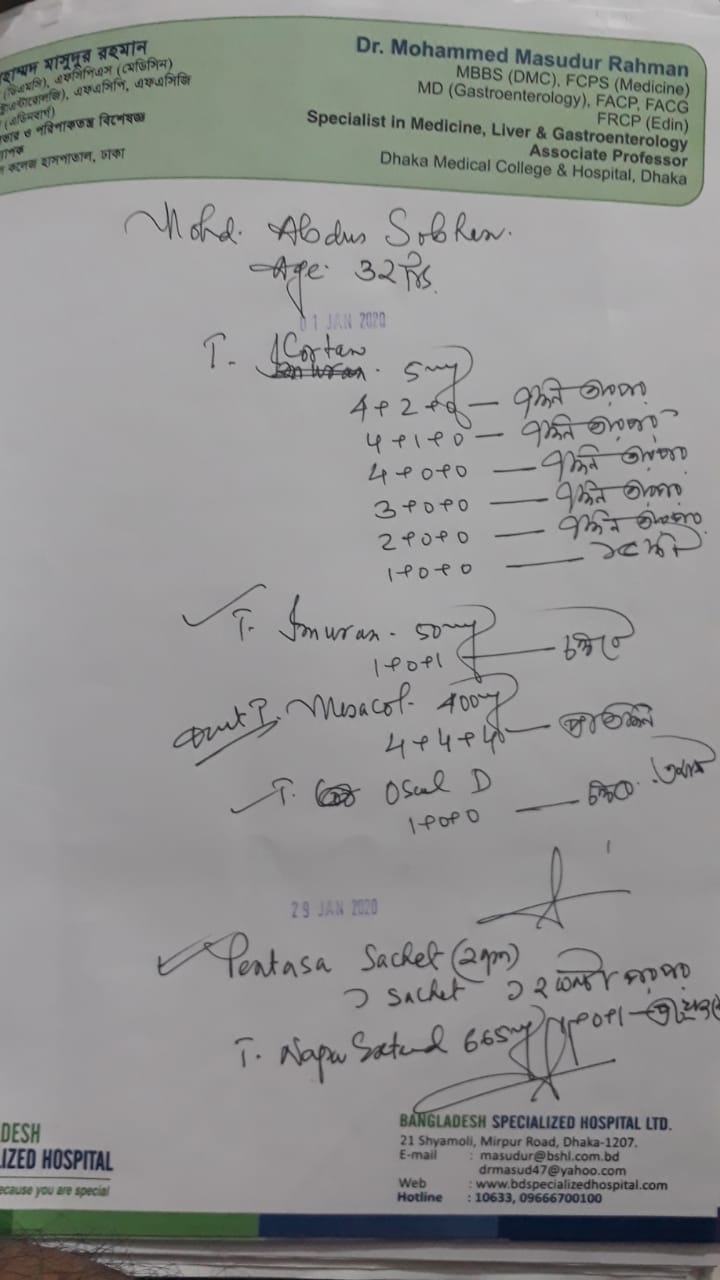 হাম্মদ মাসুদুর রহমান
(ডিএমসি), এফসিপিএস (মেডিসিন)
এফসিপি, এফএসিজি
ভার ও পরিপাকতন্ত্র বিশেষজ্ঞ
পক
কলেজ হাসপাতাল, ঢাকা
Dr. Mohammed Masudur Rahman
MBBS (DMC), FCPS (Medicine)
MD (Gastroenterology), FACP, FACG
FRCP (Edin)
Specialist in Medicine, Liver & Gastroenterology
Associate Professor
Dhaka Medical College & Hospital, Dhaka
Mohd. Abdus Sobhan.
Age: 32 Yrs.
01 JAN 2020
T. Cortan 5mg
4+2+0 —
4+1+0 —
4+0+0 —
3+0+0 —
2+0+0 —
1+0+0 —
T. Imuran - 50mg
1+0+1 — চলবে
T. Mesacol - 400mg
4+4+4 —
T. Oscal D
1+0+0 — চলবে
29 JAN 2020
Pentasa Sachet (2gm)
১ sachet ১২ ঘন্টা পরপর
T. Napa Extend 665mg 1+0+1 —
DESH
IZED HOSPITAL
ecause you are special
BANGLADESH SPECIALIZED HOSPITAL LTD.
21 Shyamoli, Mirpur Road, Dhaka-1207.
E-mail : masudur@bshl.com.bd
drmasud47@yahoo.com
Web : www.bdspecializedhospital.com
Hotline : 10633, 09666700100